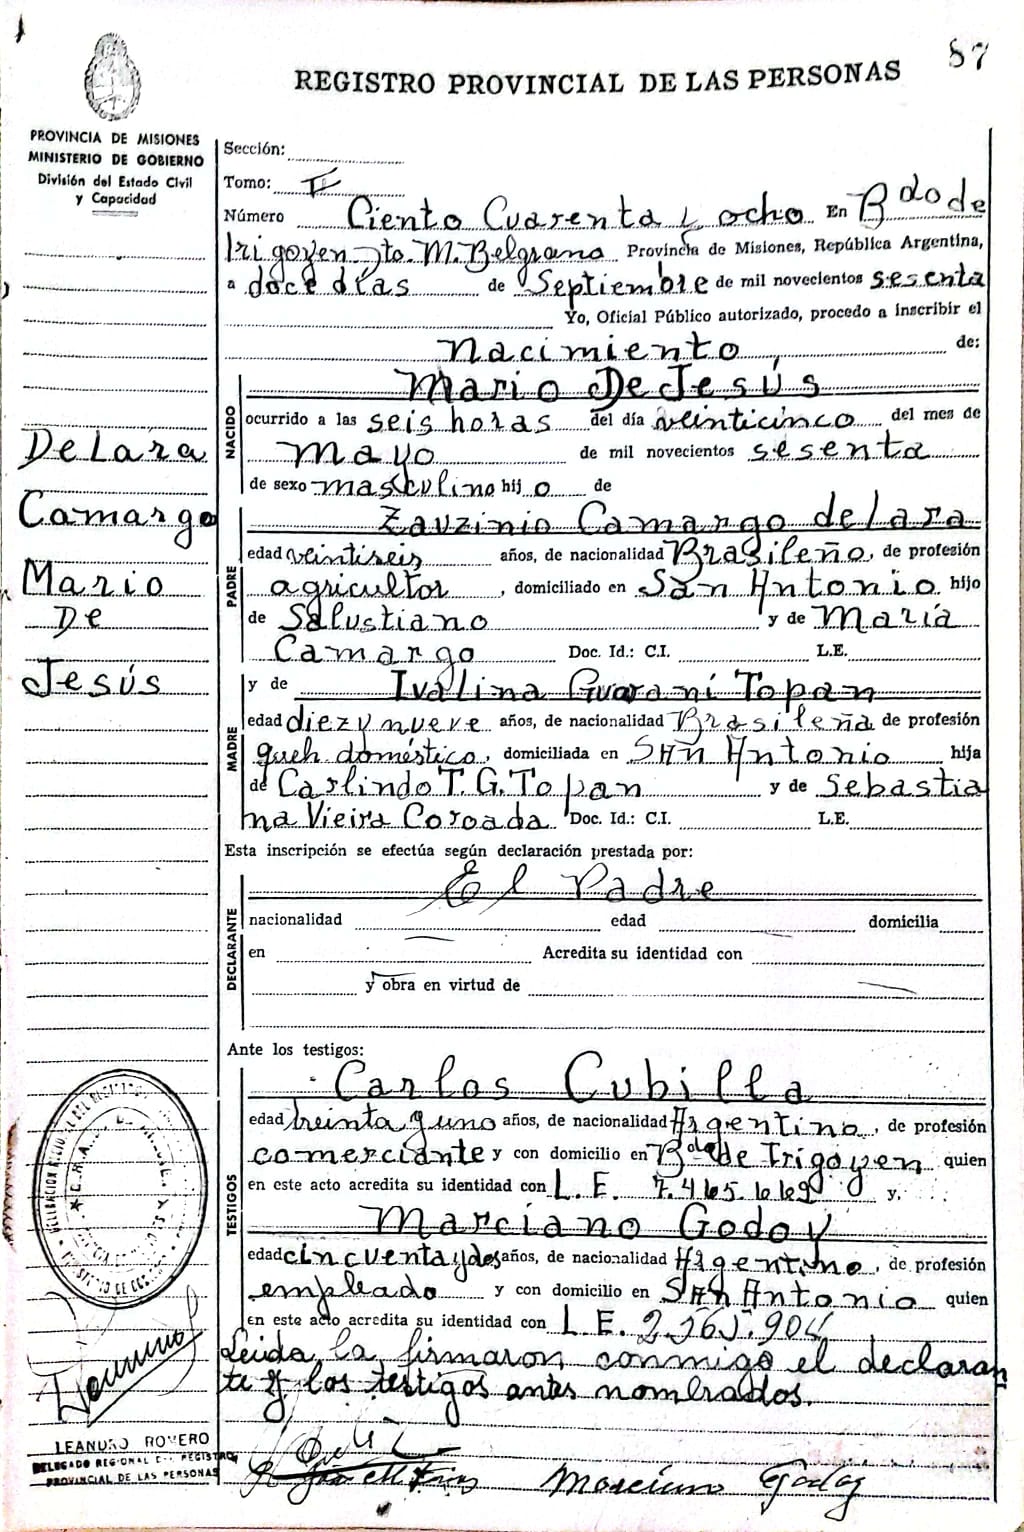 87
REGISTRO PROVINCIAL DE LAS PERSONAS
PROVINCIA DE MISIONES
MINISTERIO DE GOBIERNO
División del Estado Civil
y Capacidad
De Lara
Camargo
Mario
De
Jesús
Sección:
Tomo: II
Número Ciento Cuarenta y ocho En Bdo de
Irigoyen Dto. M. Belgrano Provincia de Misiones, República Argentina,
a doce días de Septiembre de mil novecientos sesenta
Yo, Oficial Público autorizado, procedo a inscribir el
nacimiento de:
NACIDO
Mario De Jesús
ocurrido a las seis horas del día veinticinco del mes de
mayo de mil novecientos sesenta
de sexo masculino hijo de
PADRE
Zauzinio Camargo de lara
edad veintiseis años, de nacionalidad Brasileño, de profesión
agricultor, domiciliado en San Antonio hijo
de Salustiano y de María
Camargo Doc. Id.: C.I. L.E.
MADRE
y de Ivalina Guaraní Topan
edad diez y nueve años, de nacionalidad Brasileña de profesión
queh. doméstico, domiciliada en San Antonio hija
de Carlindo T. G. Topan y de Sebastia
na Vieira Coroada Doc. Id.: C.I. L.E.
Esta inscripción se efectúa según declaración prestada por:
DECLARANTE
El Padre
nacionalidad edad domicilia
en Acredita su identidad con
y obra en virtud de
Ante los testigos:
TESTIGOS
Carlos Cubilla
edad treinta y uno años, de nacionalidad Argentino, de profesión
comerciante y con domicilio en Bdo de Irigoyen quien
en este acto acredita su identidad con L.E. 7.465.669 y,
Marciano Godoy
edad cincuenta y dos años, de nacionalidad Argentino, de profesión
empleado y con domicilio en San Antonio quien
en este acto acredita su identidad con L.E. 2.565.904
Leida la firmaron conmigo el declaran
te y los testigos antes nombrados.
LEANDRO ROMERO
DELEGADO REGIONAL DEL REGISTRO
PROVINCIAL DE LAS PERSONAS
Marciano Godoy